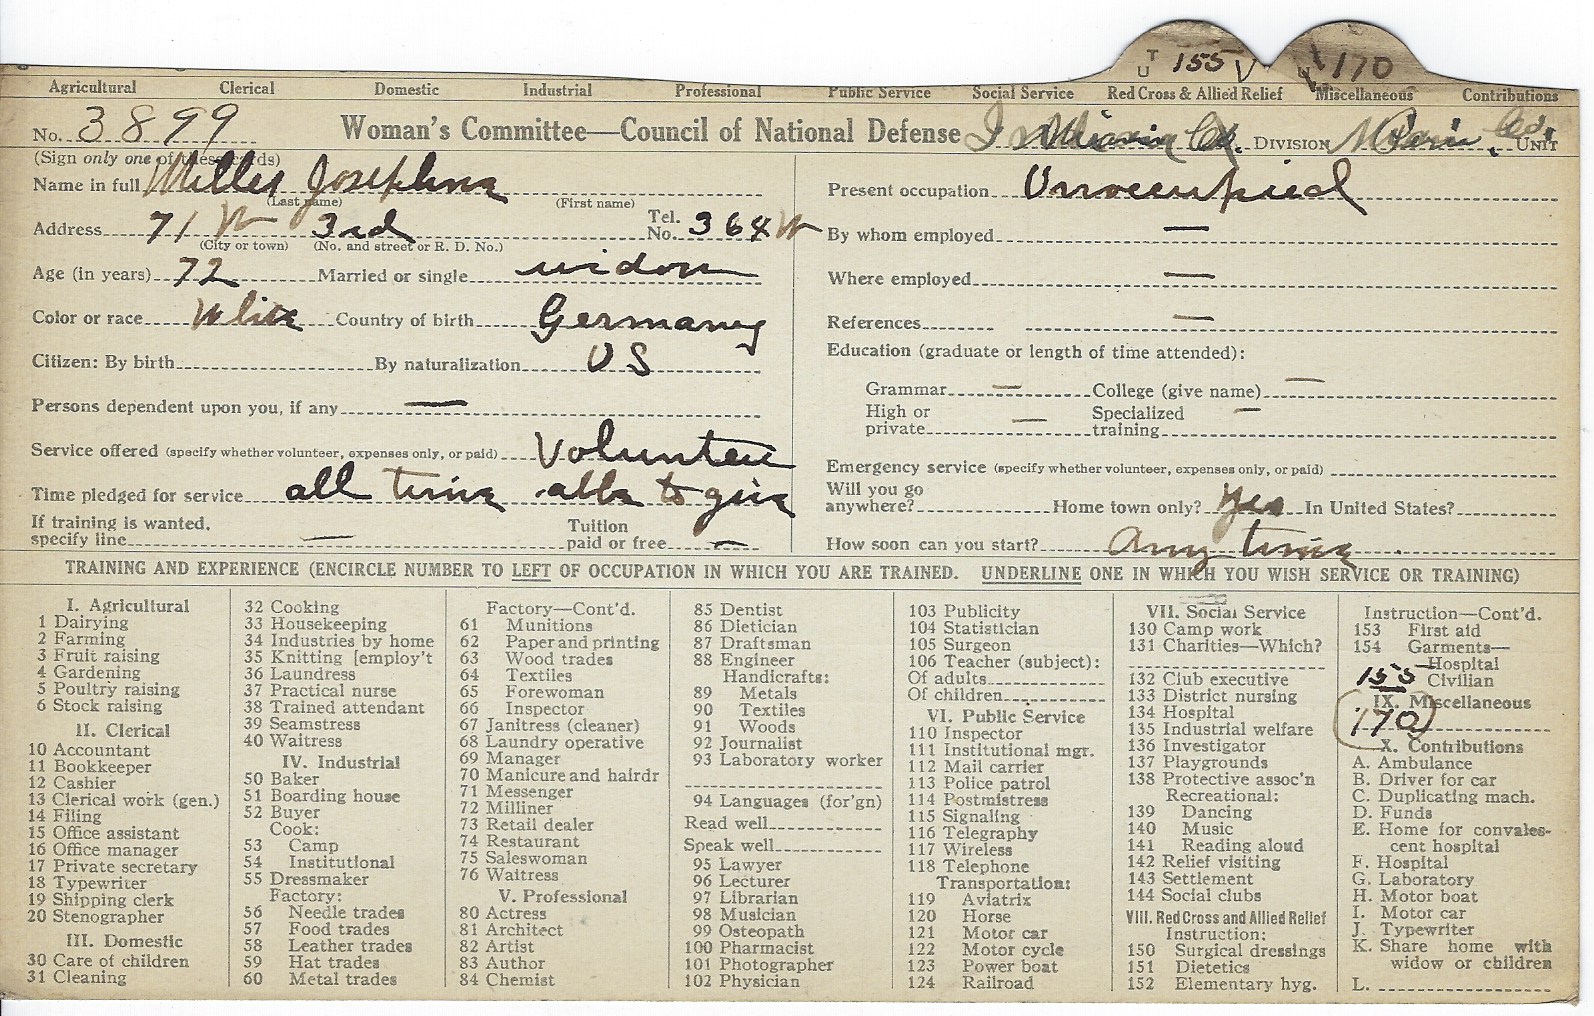 T U 155 V 170
Agricultural Clerical Domestic Industrial Professional Public Service Social Service Red Cross & Allied Relief Miscellaneous Contributions
No. 3899 Woman's Committee—Council of National Defense Miami Co. DIVISION Co. UNIT
(Sign only one of these cards)
Name in full Miller Josephine
(Last name) (First name)
Address 71 W 3rd Tel. No. 364 W
(City or town) (No. and street or R. D. No.)
Age (in years) 72 Married or single widow
Color or race White Country of birth Germany
Citizen: By birth By naturalization U S
Persons dependent upon you, if any —
Service offered (specify whether volunteer, expenses only, or paid) Volunteer
Time pledged for service all time able to give
If training is wanted, specify line — Tuition paid or free —
Present occupation Unoccupied
By whom employed —
Where employed —
References —
Education (graduate or length of time attended):
Grammar — College (give name) —
High or private — Specialized training —
Emergency service (specify whether volunteer, expenses only, or paid)
Will you go anywhere? Home town only? Yes In United States?
How soon can you start? Any time
TRAINING AND EXPERIENCE (ENCIRCLE NUMBER TO LEFT OF OCCUPATION IN WHICH YOU ARE TRAINED. UNDERLINE ONE IN WHICH YOU WISH SERVICE OR TRAINING)
I. Agricultural
1 Dairying
2 Farming
3 Fruit raising
4 Gardening
5 Poultry raising
6 Stock raising
II. Clerical
10 Accountant
11 Bookkeeper
12 Cashier
13 Clerical work (gen.)
14 Filing
15 Office assistant
16 Office manager
17 Private secretary
18 Typewriter
19 Shipping clerk
20 Stenographer
III. Domestic
30 Care of children
31 Cleaning
32 Cooking
33 Housekeeping
34 Industries by home
35 Knitting [employ't
36 Laundress
37 Practical nurse
38 Trained attendant
39 Seamstress
40 Waitress
IV. Industrial
50 Baker
51 Boarding house
52 Buyer
Cook:
53 Camp
54 Institutional
55 Dressmaker
Factory:
56 Needle trades
57 Food trades
58 Leather trades
59 Hat trades
60 Metal trades
Factory—Cont'd.
61 Munitions
62 Paper and printing
63 Wood trades
64 Textiles
65 Forewoman
66 Inspector
67 Janitress (cleaner)
68 Laundry operative
69 Manager
70 Manicure and hairdr
71 Messenger
72 Milliner
73 Retail dealer
74 Restaurant
75 Saleswoman
76 Waitress
V. Professional
80 Actress
81 Architect
82 Artist
83 Author
84 Chemist
85 Dentist
86 Dietician
87 Draftsman
88 Engineer
Handicrafts:
89 Metals
90 Textiles
91 Woods
92 Journalist
93 Laboratory worker
94 Languages (for'gn)
Read well
Speak well
95 Lawyer
96 Lecturer
97 Librarian
98 Musician
99 Osteopath
100 Pharmacist
101 Photographer
102 Physician
103 Publicity
104 Statistician
105 Surgeon
106 Teacher (subject):
Of adults
Of children
VI. Public Service
110 Inspector
111 Institutional mgr.
112 Mail carrier
113 Police patrol
114 Postmistress
115 Signaling
116 Telegraphy
117 Wireless
118 Telephone
Transportation:
119 Aviatrix
120 Horse
121 Motor car
122 Motor cycle
123 Power boat
124 Railroad
VII. Social Service
130 Camp work
131 Charities—Which?
132 Club executive
133 District nursing
134 Hospital
135 Industrial welfare
136 Investigator
137 Playgrounds
138 Protective assoc'n
Recreational:
139 Dancing
140 Music
141 Reading aloud
142 Relief visiting
143 Settlement
144 Social clubs
VIII. Red Cross and Allied Relief
Instruction:
150 Surgical dressings
151 Dietetics
152 Elementary hyg.
Instruction—Cont'd.
153 First aid
154 Garments—
Hospital
155 Civilian
IX. Miscellaneous
170
X. Contributions
A. Ambulance
B. Driver for car
C. Duplicating mach.
D. Funds
E. Home for convales-
cent hospital
F. Hospital
G. Laboratory
H. Motor boat
I. Motor car
J. Typewriter
K. Share home with
widow or children
L.